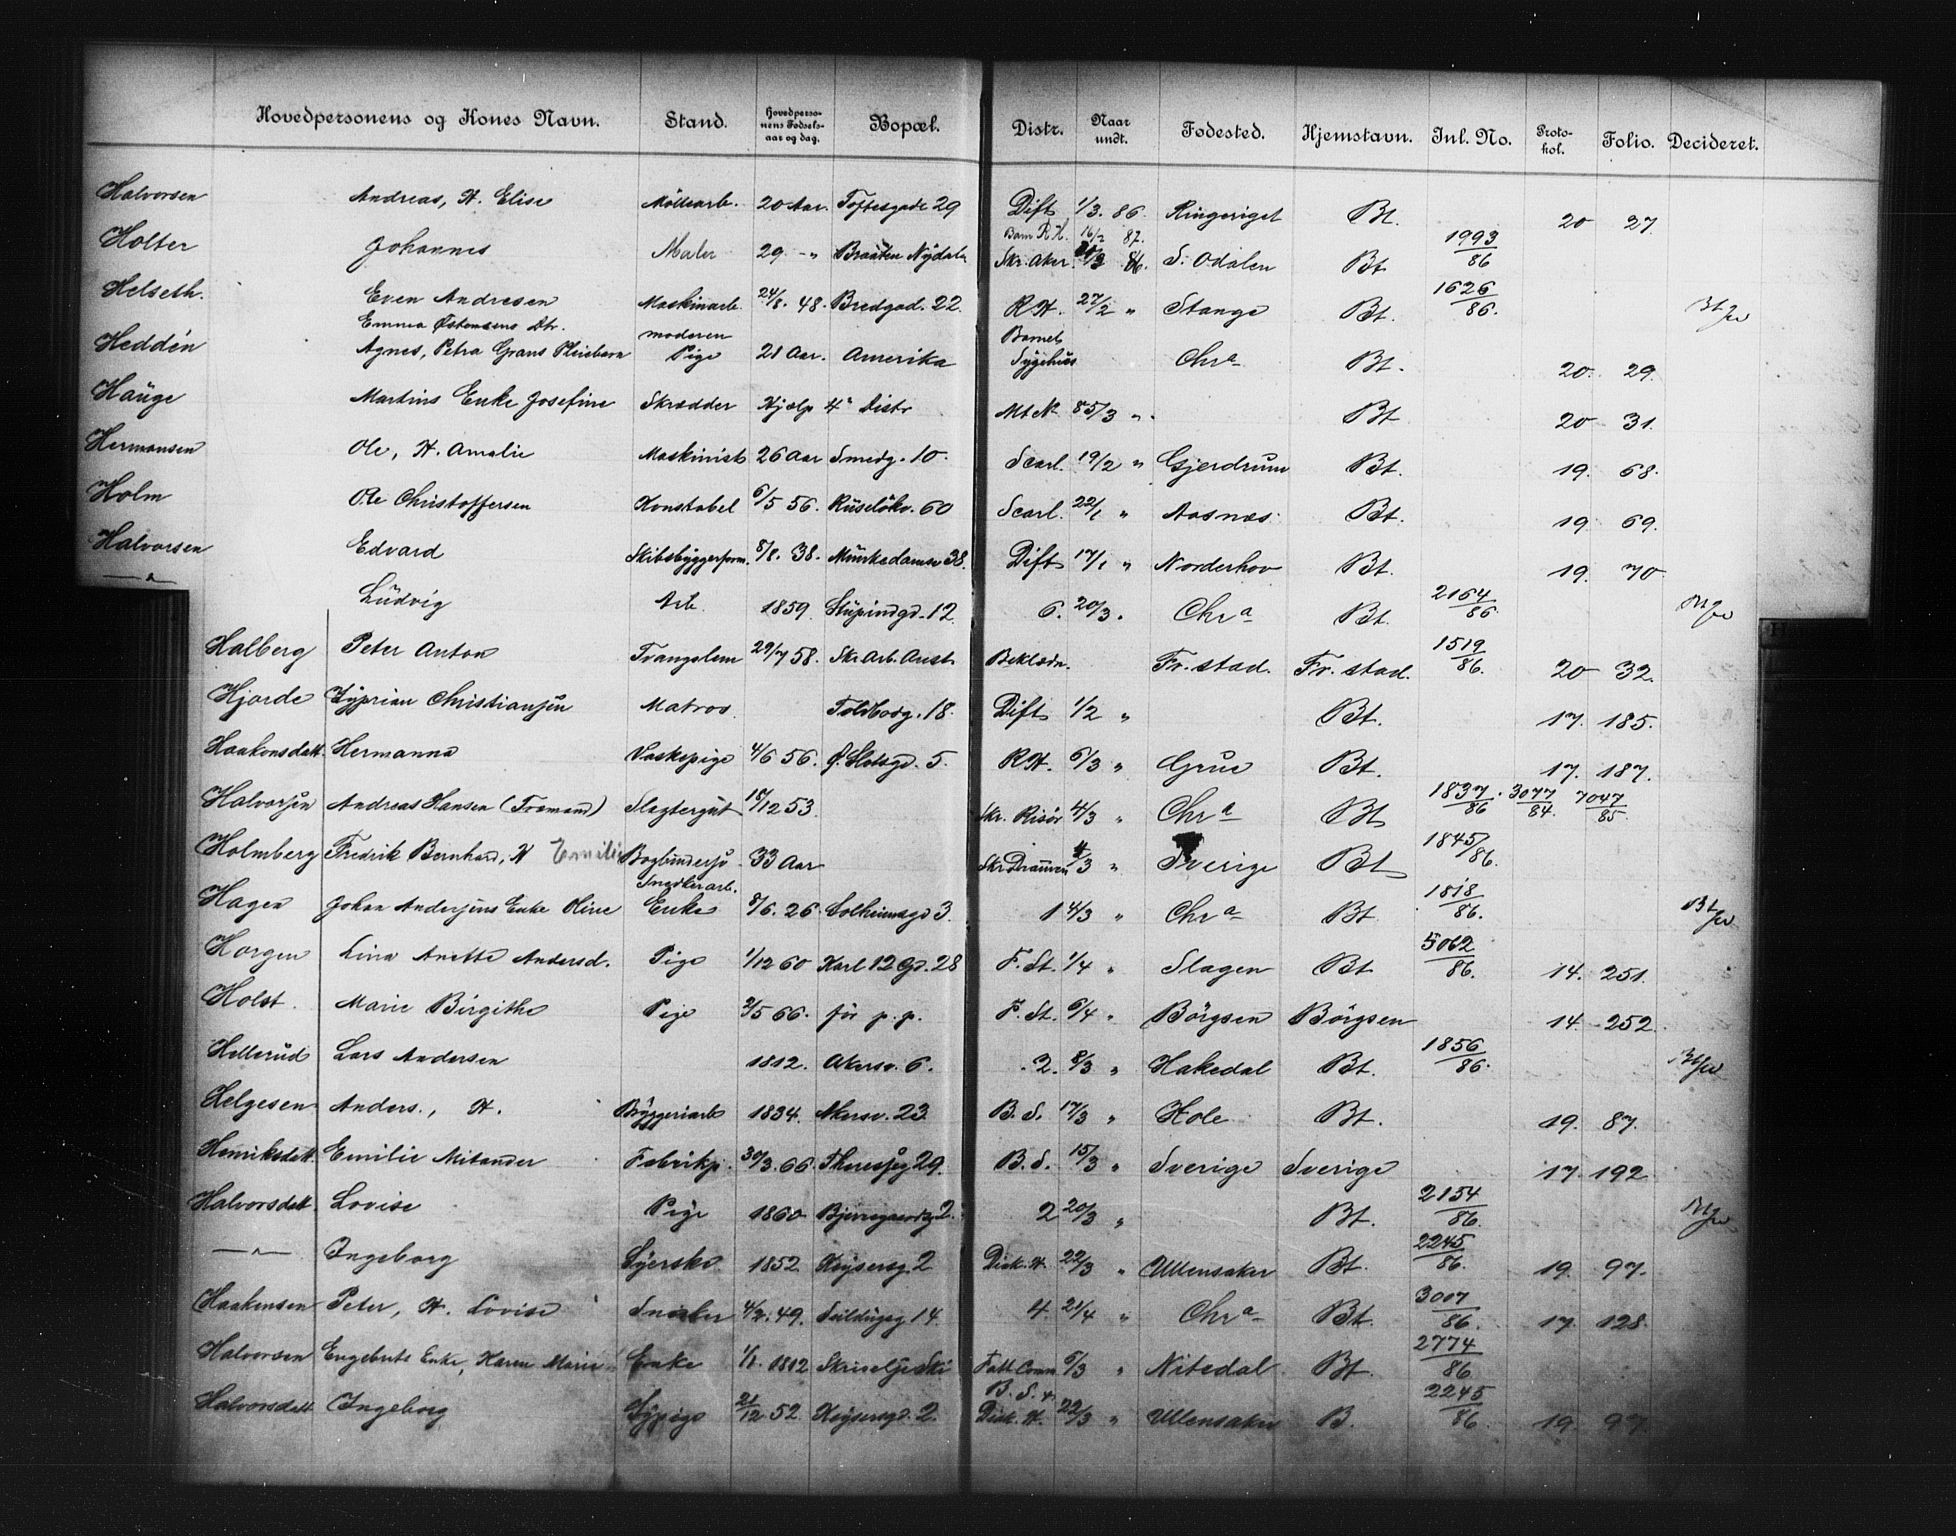 Hovedpersonens og Kones Navn. Stand. Hovedperso-nens Fødsels-aar og dag. Bopæl. Distr. Naar undt. Fødested. Hjemstavn. Inl. No. Proto-kol. Folio. Decideret.
Halvorsen Andreas, H. Elise Møllearb. 20 Aar. Toftesgade 29 Dift 1/3. 86. Ringeriget Bt. 20 27.
Barn R.H. 16/2 87.
Holter Johannes Maler 29 -"- Braaten Nydalen Skr. Aker. 86. S. Odalen Bt 1993/86
Helseth. Even Andresen Maskinarb. 24/8. 48. Bredgad. 22. R.H. 27/2 " Stange Bt. 1626/86.
Emma Østensens Dtr. moderen Barnet
Heddén Agnes, Petra Grans Pleiebarn Pige 21 Aar. Amerika Sygehus Chra Bt. 20. 29.
Hauge Martins Enke Josefine Skrædder Hjælp 4' Distr " Bt 20 31.
Hermansen Ole, H. Amalie Maskinist 26 Aar Smedg. 10. Scarl. 19/2 " Gjerdrum Bt. 19. 68.
Holm Ole Christoffersen Konstabel 6/5 56. Ruseløkv. 60 Scarl. 22/1 " Aasnæs Bt. 19. 69.
Halvorsen Edvard Skibsbyggerform. 8/8. 38. Munkedamsv 38. Dift 17/1 " Norderhov Bt. 19. 70
—"— Ludvig Arb. 1859. Stupindgd. 12. 6. 20/3 " Chra Bt. 2164/86
Halberg Peter Anton Tvangslem 29/7 58. Skr. Arb. Arest Beklædn. Fr. stad. Fr. stad. 1519/86. 20 32.
Hjorde Zyprian Christiansen Matros Toldbodg. 18. Dift 1/2 " Bt. 17. 185.
Haakonsdatt. Hermanna Vaskepige 4/6 56. Ø. Slotsgd. 5. R.H. 6/3 " Grue Bt. 17. 187.
Halvorsen Andreas Hansen (Formand) Slagtergut 18/12 53. Skr. Risør 4/3 " Chra Bt 1837/86. 3077/84. 7047/85
Holmberg Fredrik Bernhard, H Emilie Bogbindersv 33 Aar Skr Drammen 4/3 " Sverige Bt 1845/86.
Snedkerarb.
Hagen Johan Andersens Enke Oline Enke 8/6. 26. Solheimsgd 3. 1 4/3 " Chra Bt. 1818/86.
Horgen Lina Anette Andersd. Pige 1/12 60 Karl 12 Gd. 28 F. St. 1/4 " Slagen Bt 5062/86. 14. 251.
Holst. Marie Birgithe Pige 2/5 66. før p. p. F. St. 6/4 " Børgsen Børgsen 14 252.
Hellerud Lars Andersen 1812. Akersv. 6. 2. 8/3 " Hakedal Bt. 1856/86.
Helgesen Anders., H. Bryggeriarb 1834. Akersv. 23 B. S. 17/3 " Hole Bt. 19. 87.
Henriksdatt. Emilie Mitander Fabrikp. 30/3. 66. Theresesg 29. B. S. 15/3 " Sverige Sverige 17. 192.
Halvorsdatt Lovise Pige 1860 Bjerregaardsg 2. 2 20/3 " Bt. 2154/86.
—"— Ingeborg Syerske 1852 Keysersg 2 Diak. H. 22/3 " Ullensaker Bt. 2245/86. 19. 97.
Haakensen Peter, H. Lovise Snedker 4/2. 49. 14. 4. 21/4 " Chra Bt. 3007/86. 17. 128.
Halvorsen Engebrets Enke, Karen Marie Enke 1/1. 1812 Ski Fatt Comm 6/3 " Nitedal Bt. 2774/86
B. S. &
Halvorsdatt Ingeborg Sypige 21/12 52 Keysersgd. 2. Diak. H. 22/3 " Ullensaker B. 2245/86. 19. 97.